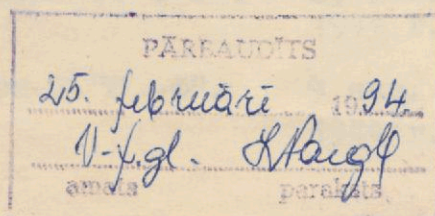 PĀRBAUDĪTS
25. februārī 1994.
V-f.gl.
amats paraksts